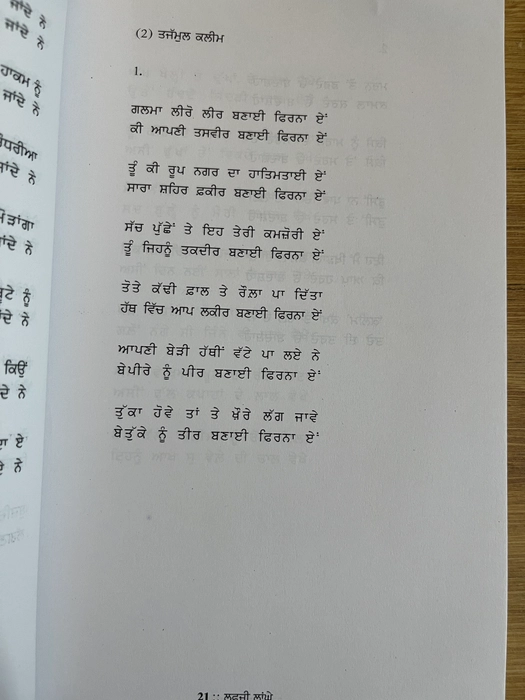 ਜਾਂਦੇ ਨੇ
ਜਾਂਦੇ ਨੇ
ਹਾਕਮ ਨੂੰ
ਜਾਂਦੇ ਨੇ
ਜਾਂਦੇ ਨੇ
ਜਾਂਦੇ ਨੇ
ਨੂੰ
ਜਾਂਦੇ ਨੇ
ਕਿਉਂ
ਨੇ
ਏ
ਨੇ
(2) ਤਜੱਮੁਲ ਕਲੀਮ
1.
ਗਲਮਾ ਲੀਰੋ ਲੀਰ ਬਣਾਈ ਫਿਰਨਾ ਏਂ
ਕੀ ਆਪਣੀ ਤਸਵੀਰ ਬਣਾਈ ਫਿਰਨਾ ਏਂ
ਤੂੰ ਕੀ ਰੂਪ ਨਗਰ ਦਾ ਹਾਤਿਮਤਾਈ ਏਂ
ਸਾਰਾ ਸ਼ਹਿਰ ਫ਼ਕੀਰ ਬਣਾਈ ਫਿਰਨਾ ਏਂ
ਸੱਚ ਪੁੱਛੇਂ ਤੇ ਇਹ ਤੇਰੀ ਕਮਜ਼ੋਰੀ ਏਂ
ਤੂੰ ਜਿਹਨੂੰ ਤਕਦੀਰ ਬਣਾਈ ਫਿਰਨਾ ਏਂ
ਤੋਤੇ ਕੱਢੀ ਫ਼ਾਲ ਤੇ ਰੌਲਾ ਪਾ ਦਿੱਤਾ
ਹੱਥ ਵਿੱਚ ਆਪ ਲਕੀਰ ਬਣਾਈ ਫਿਰਨਾ ਏਂ
ਆਪਣੀ ਬੇੜੀ ਹੱਥੀਂ ਵੱਟੇ ਪਾ ਲਏ ਨੇ
ਬੇਪੀਰੇ ਨੂੰ ਪੀਰ ਬਣਾਈ ਫਿਰਨਾ ਏਂ
ਤੁੱਕਾ ਹੋਵੇ ਤਾਂ ਤੇ ਖ਼ੌਰੇ ਲੱਗ ਜਾਵੇ
ਬੇਤੁੱਕੇ ਨੂੰ ਤੀਰ ਬਣਾਈ ਫਿਰਨਾ ਏਂ
21 :: ਲਫ਼ਜ਼ੀ ਲਾਂਘੇ